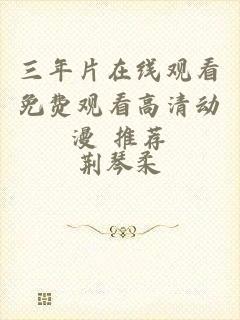 三年片在线观看
免费观看高清动
漫 推荐
荆琴柔